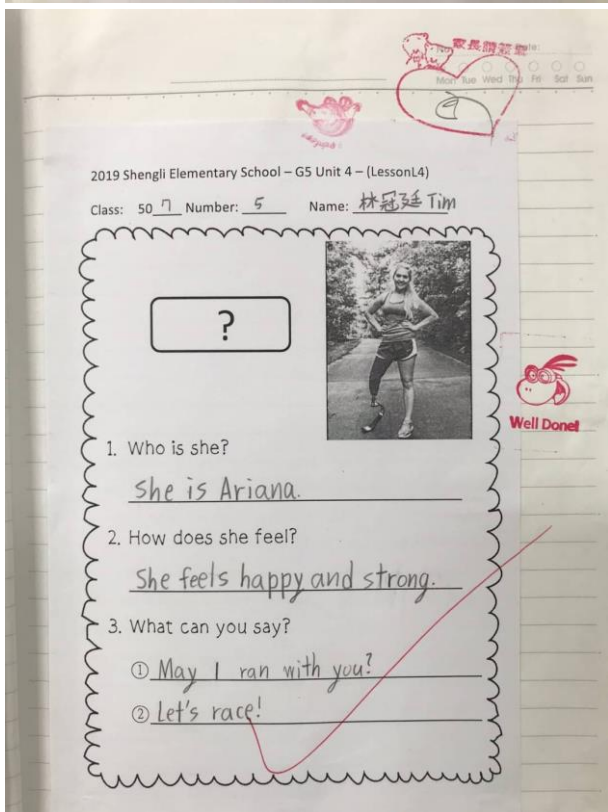 家長請簽章
No. Date:
Mon Tue Wed Thu Fri Sat Sun
2019 Shengli Elementary School – G5 Unit 4 – (LessonL4)
Class: 50 7 Number: 5 Name: 林冠廷 Tim
?
1. Who is she?
She is Ariana.
Well Done!
2. How does she feel?
She feels happy and strong.
3. What can you say?
① May I ran with you?
② Let's race!